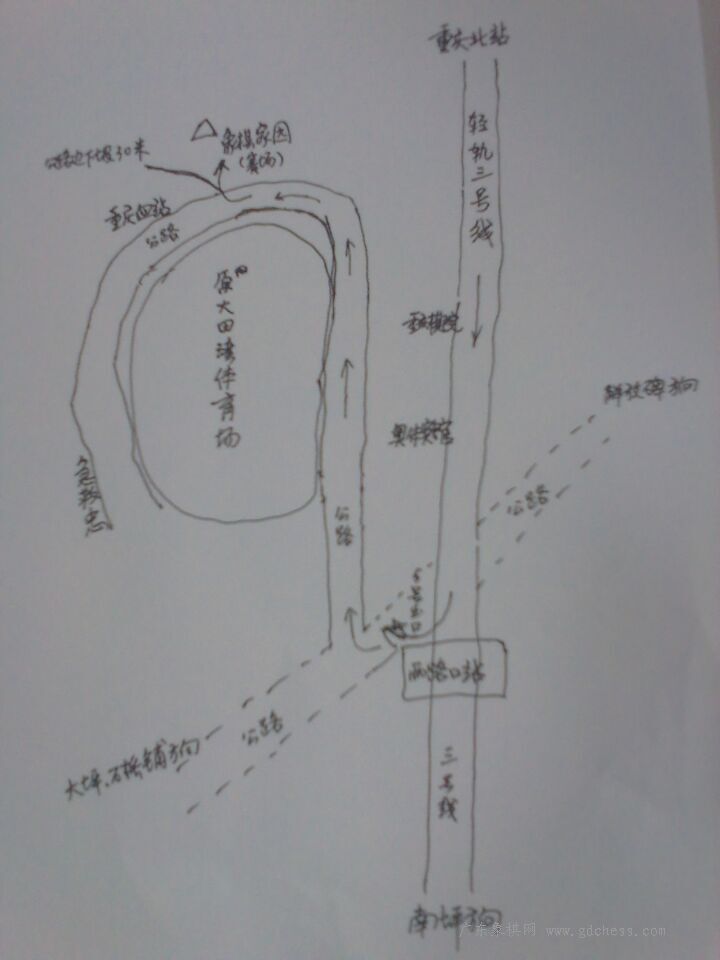 重庆北站
轻轨三号线
象棋家园
(赛场)
公路边下坡30米
重庆血站
公路
原大田湾体育场
重庆棋院
奥体宾馆
解放碑方向
公路
急救中心
公路
5号出口
两路口站
公路
大坪、石桥铺方向
三号线
南坪方向
广东象棋网 www.gdchess.com